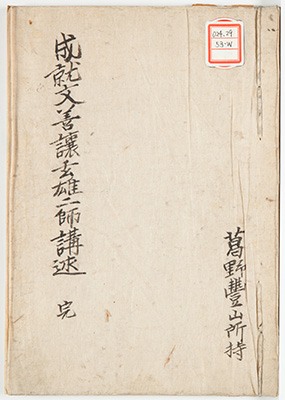 024.29
53-W
成就文善讓玄雄二師講述 完
葛野豐山所持